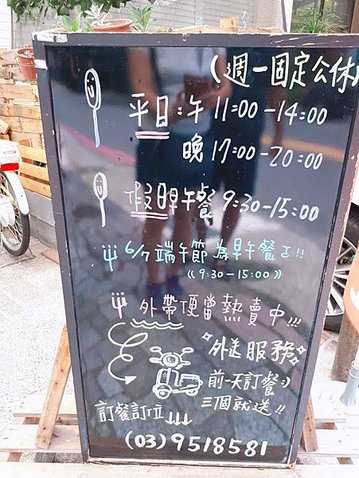 (週一固定公休)
平日:午 11:00-14:00
晚 17:00-20:00
假日早午餐 9:30-15:00
6/7 端午節為早午餐!!
((9:30-15:00))
外帶便當熱賣中!!!
外送服務
前一天訂餐:)
三個就送!!
訂餐訂位↓↓↓
(03)9518581